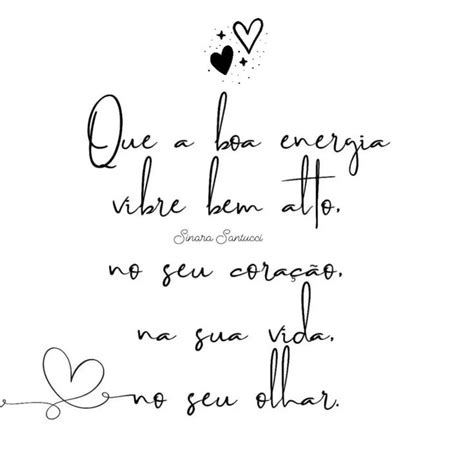 Que a boa energia
vibre bem alto,
Sinara Santucci
no seu coração,
na sua vida,
no seu olhar.